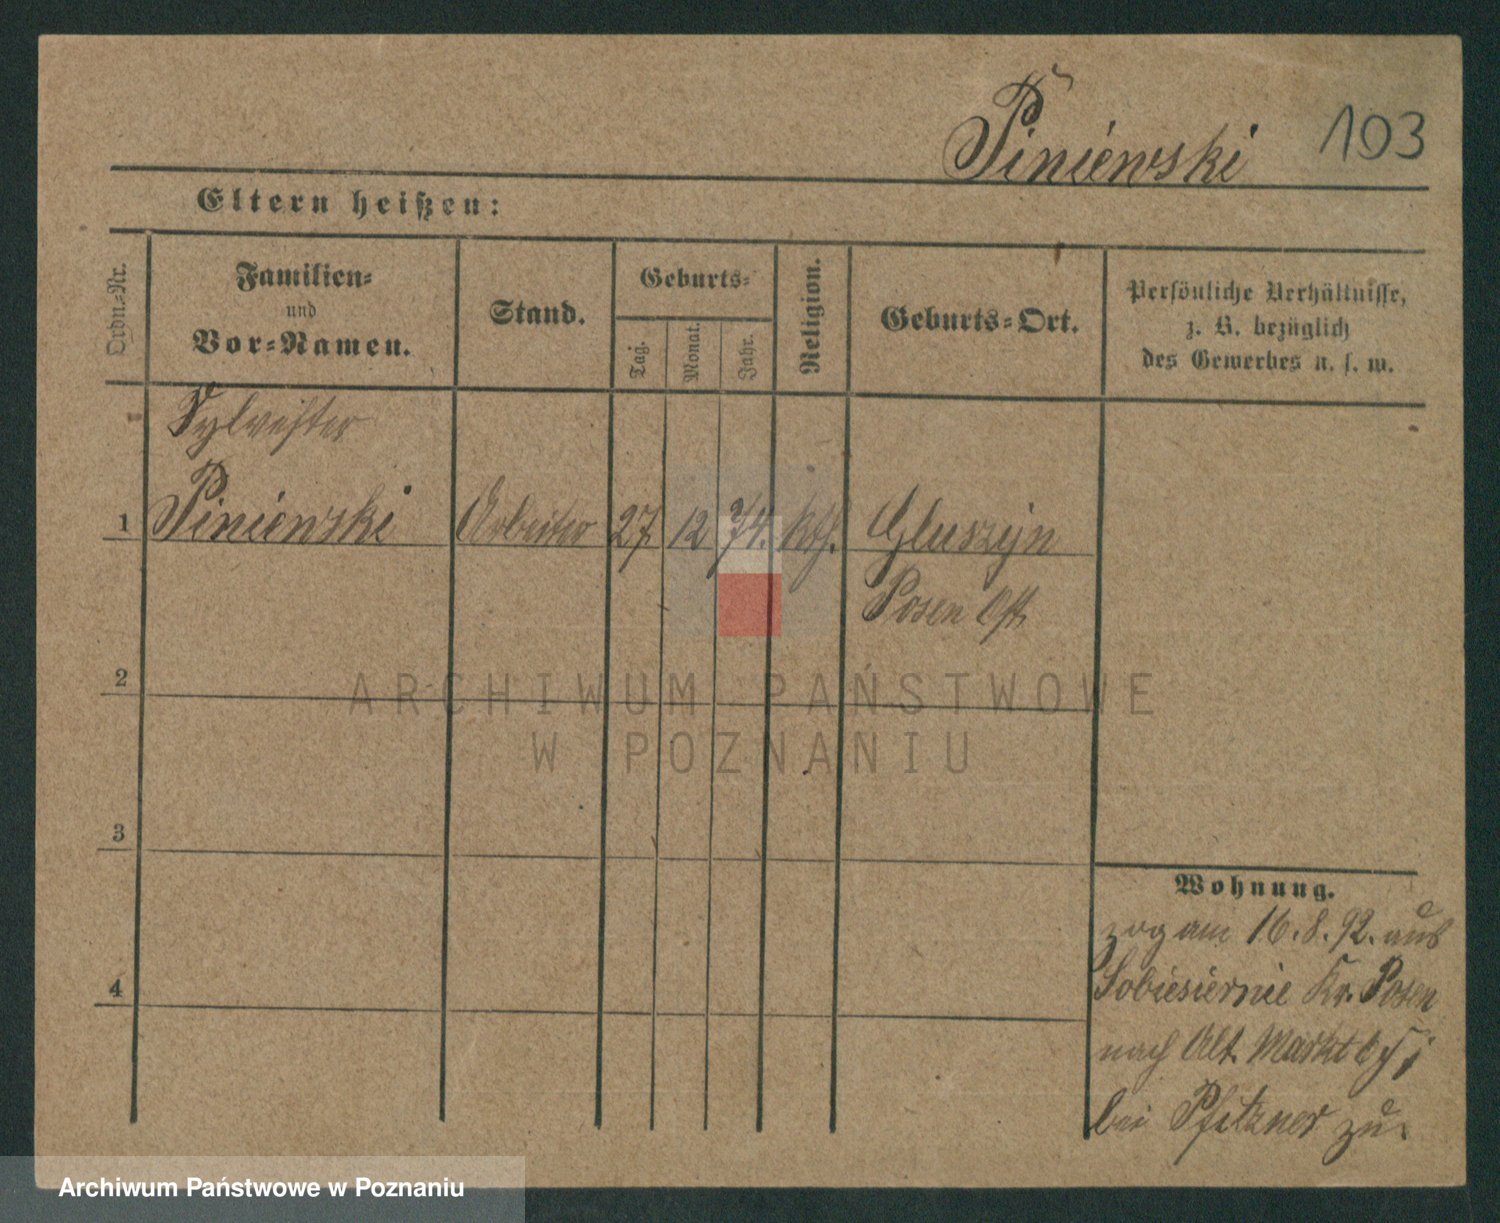 Piniewski 103
Eltern heißen:
Ordn.-Nr.
Familien-
und
Vor-Namen.
Stand.
Geburts-
Tag.
Monat.
Jahr.
Religion.
Geburts-Ort.
Persönliche Verhältnisse,
z. B. bezüglich
des Gewerbes u. s. w.
Sylvester
1 Piniewski Arbeiter 27. 12 74. kth. Gluszyn
Posen Ost
2
ARCHIWUM PAŃSTWOWE
W POZNANIU
3
Wohnung.
zog am 16.8.92. aus
Sobiesiernie Kr. Posen
4
nach Alt. Markt
bei Pfitzner zu.
Archiwum Państwowe w Poznaniu